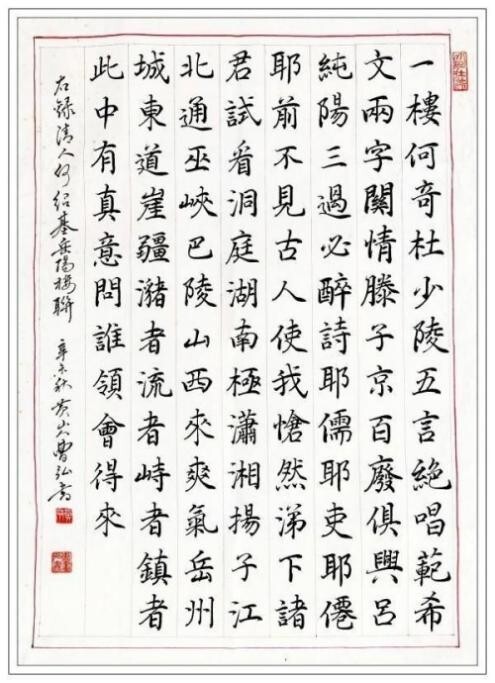 一樓何奇杜少陵五言絕唱範希
文兩字關情滕子京百廢俱興呂
純陽三過必醉詩耶儒耶吏耶僊
耶前不見古人使我愴然涕下諸
君試看洞庭湖南極瀟湘揚子江
北通巫峽巴陵山西來爽氣岳州
城東道崖疆瀦者流者峙者鎮者
此中有真意問誰領會得來
右録清人何紹基岳陽樓聯 辛未秋黄山曹弘